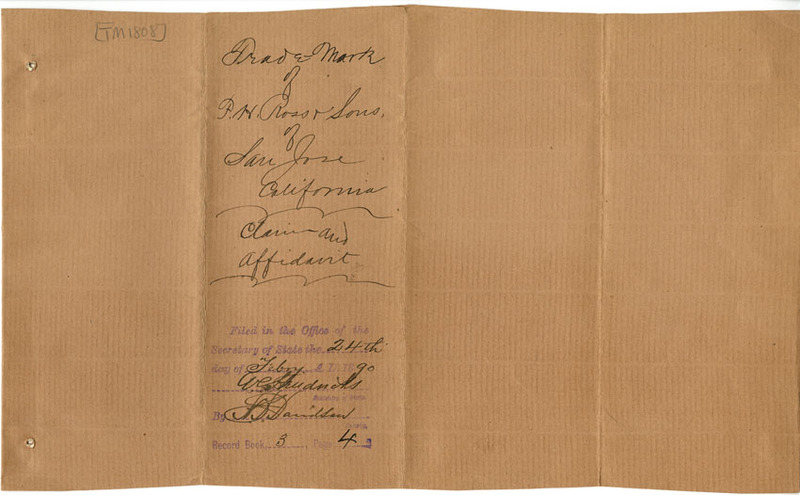 [TM1808]
Trade Mark
of
P. H. Ross & Sons,
of
San Jose
California
Claim and
Affidavit
Filed in the Office of the
Secretary of State the 24th
day of Febry A. D. 1890
W. C. Hendricks
Secretary of State.
By Davidson
Deputy.
Record Book 3 Page 4